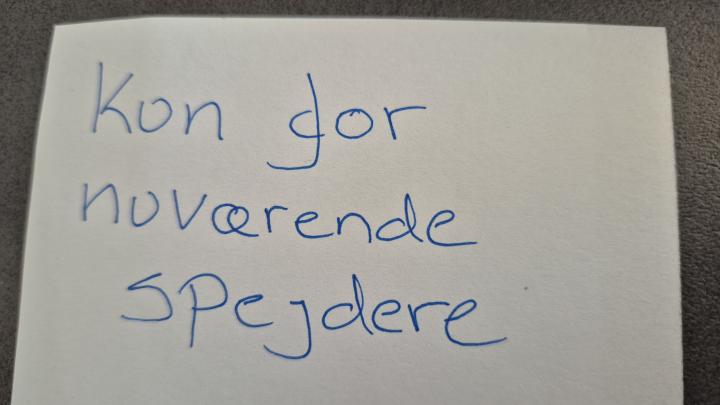 Kun for
nuværende
spejdere